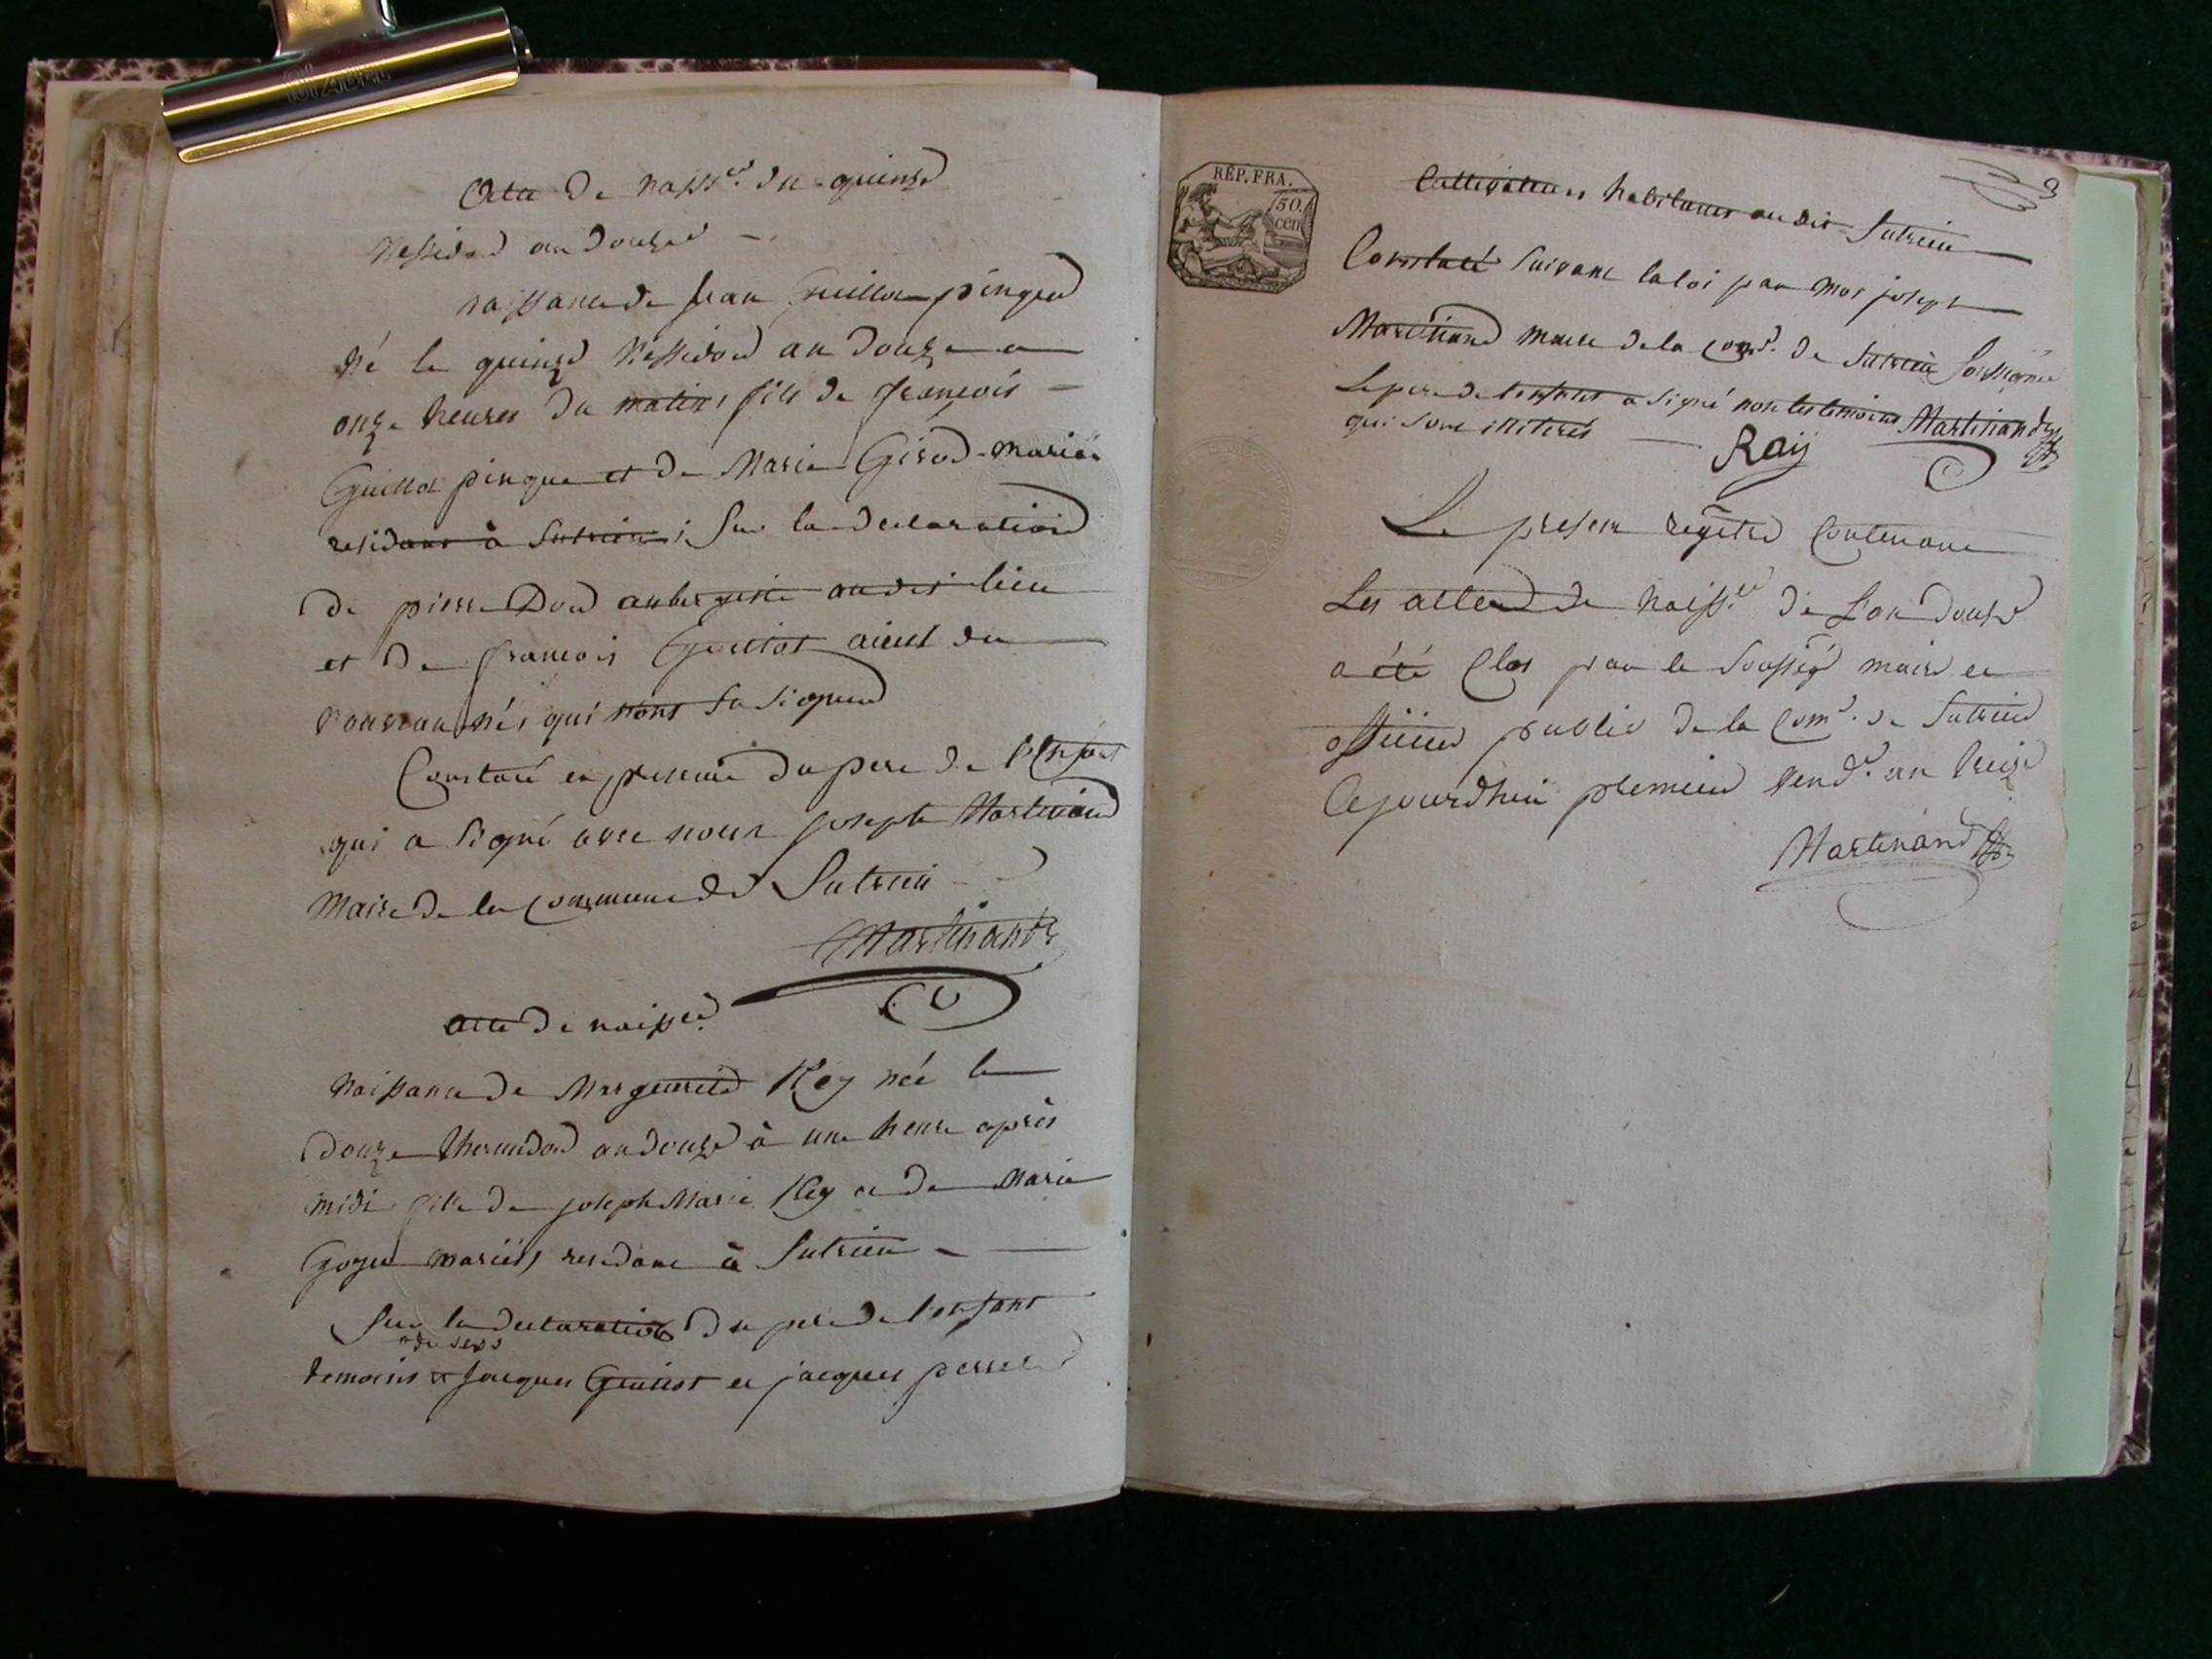 Acte de naiss.ce du quinze
Messidor an douze
naissance de Jean Guillot pingue
Né le quinze Messidor an douze a
onze heures du matin, fils de françois
Guillot pingue et de Marie Girod mariés
residant à Sutrieu ; Sur la declaration
de pierre Dod aubergiste audit lieu
et de francois Guillot aieul du
nouveau nés qui nont su signer
Constaté en presence du pere de l'enfant
qui a signé avec nous joseph Martinand
Maire de la commune de Sutrieu
Martinand
acte de naiss.ce
Naissance de Marguerite Rey née le
douze thermidor an douze à une heure après
midi fille de joseph Marie Rey et de Marie
Goyet mariés, residant à Sutrieu
Sur la declaration du pere de l'enfant
temoins Jacques Guillot et jacques
RÉP. FRA.
50. cen
3
Cultivateurs habitants au dit Sutrieu
Constaté Suivant la loi par moi joseph
Martinand maire de la com.e de Sutrieu Soussigné
Le pere de l'enfant a signé non les temoins Martinand
qui sont illiterés
Rây
Le present regitre Contenant
Les actes de naiss.ce de L'an douze
a été Clos par le soussigé maire et
officier public de la Com.e de Sutrieu
Cejourdhui premier vend.re an treize
Martinand